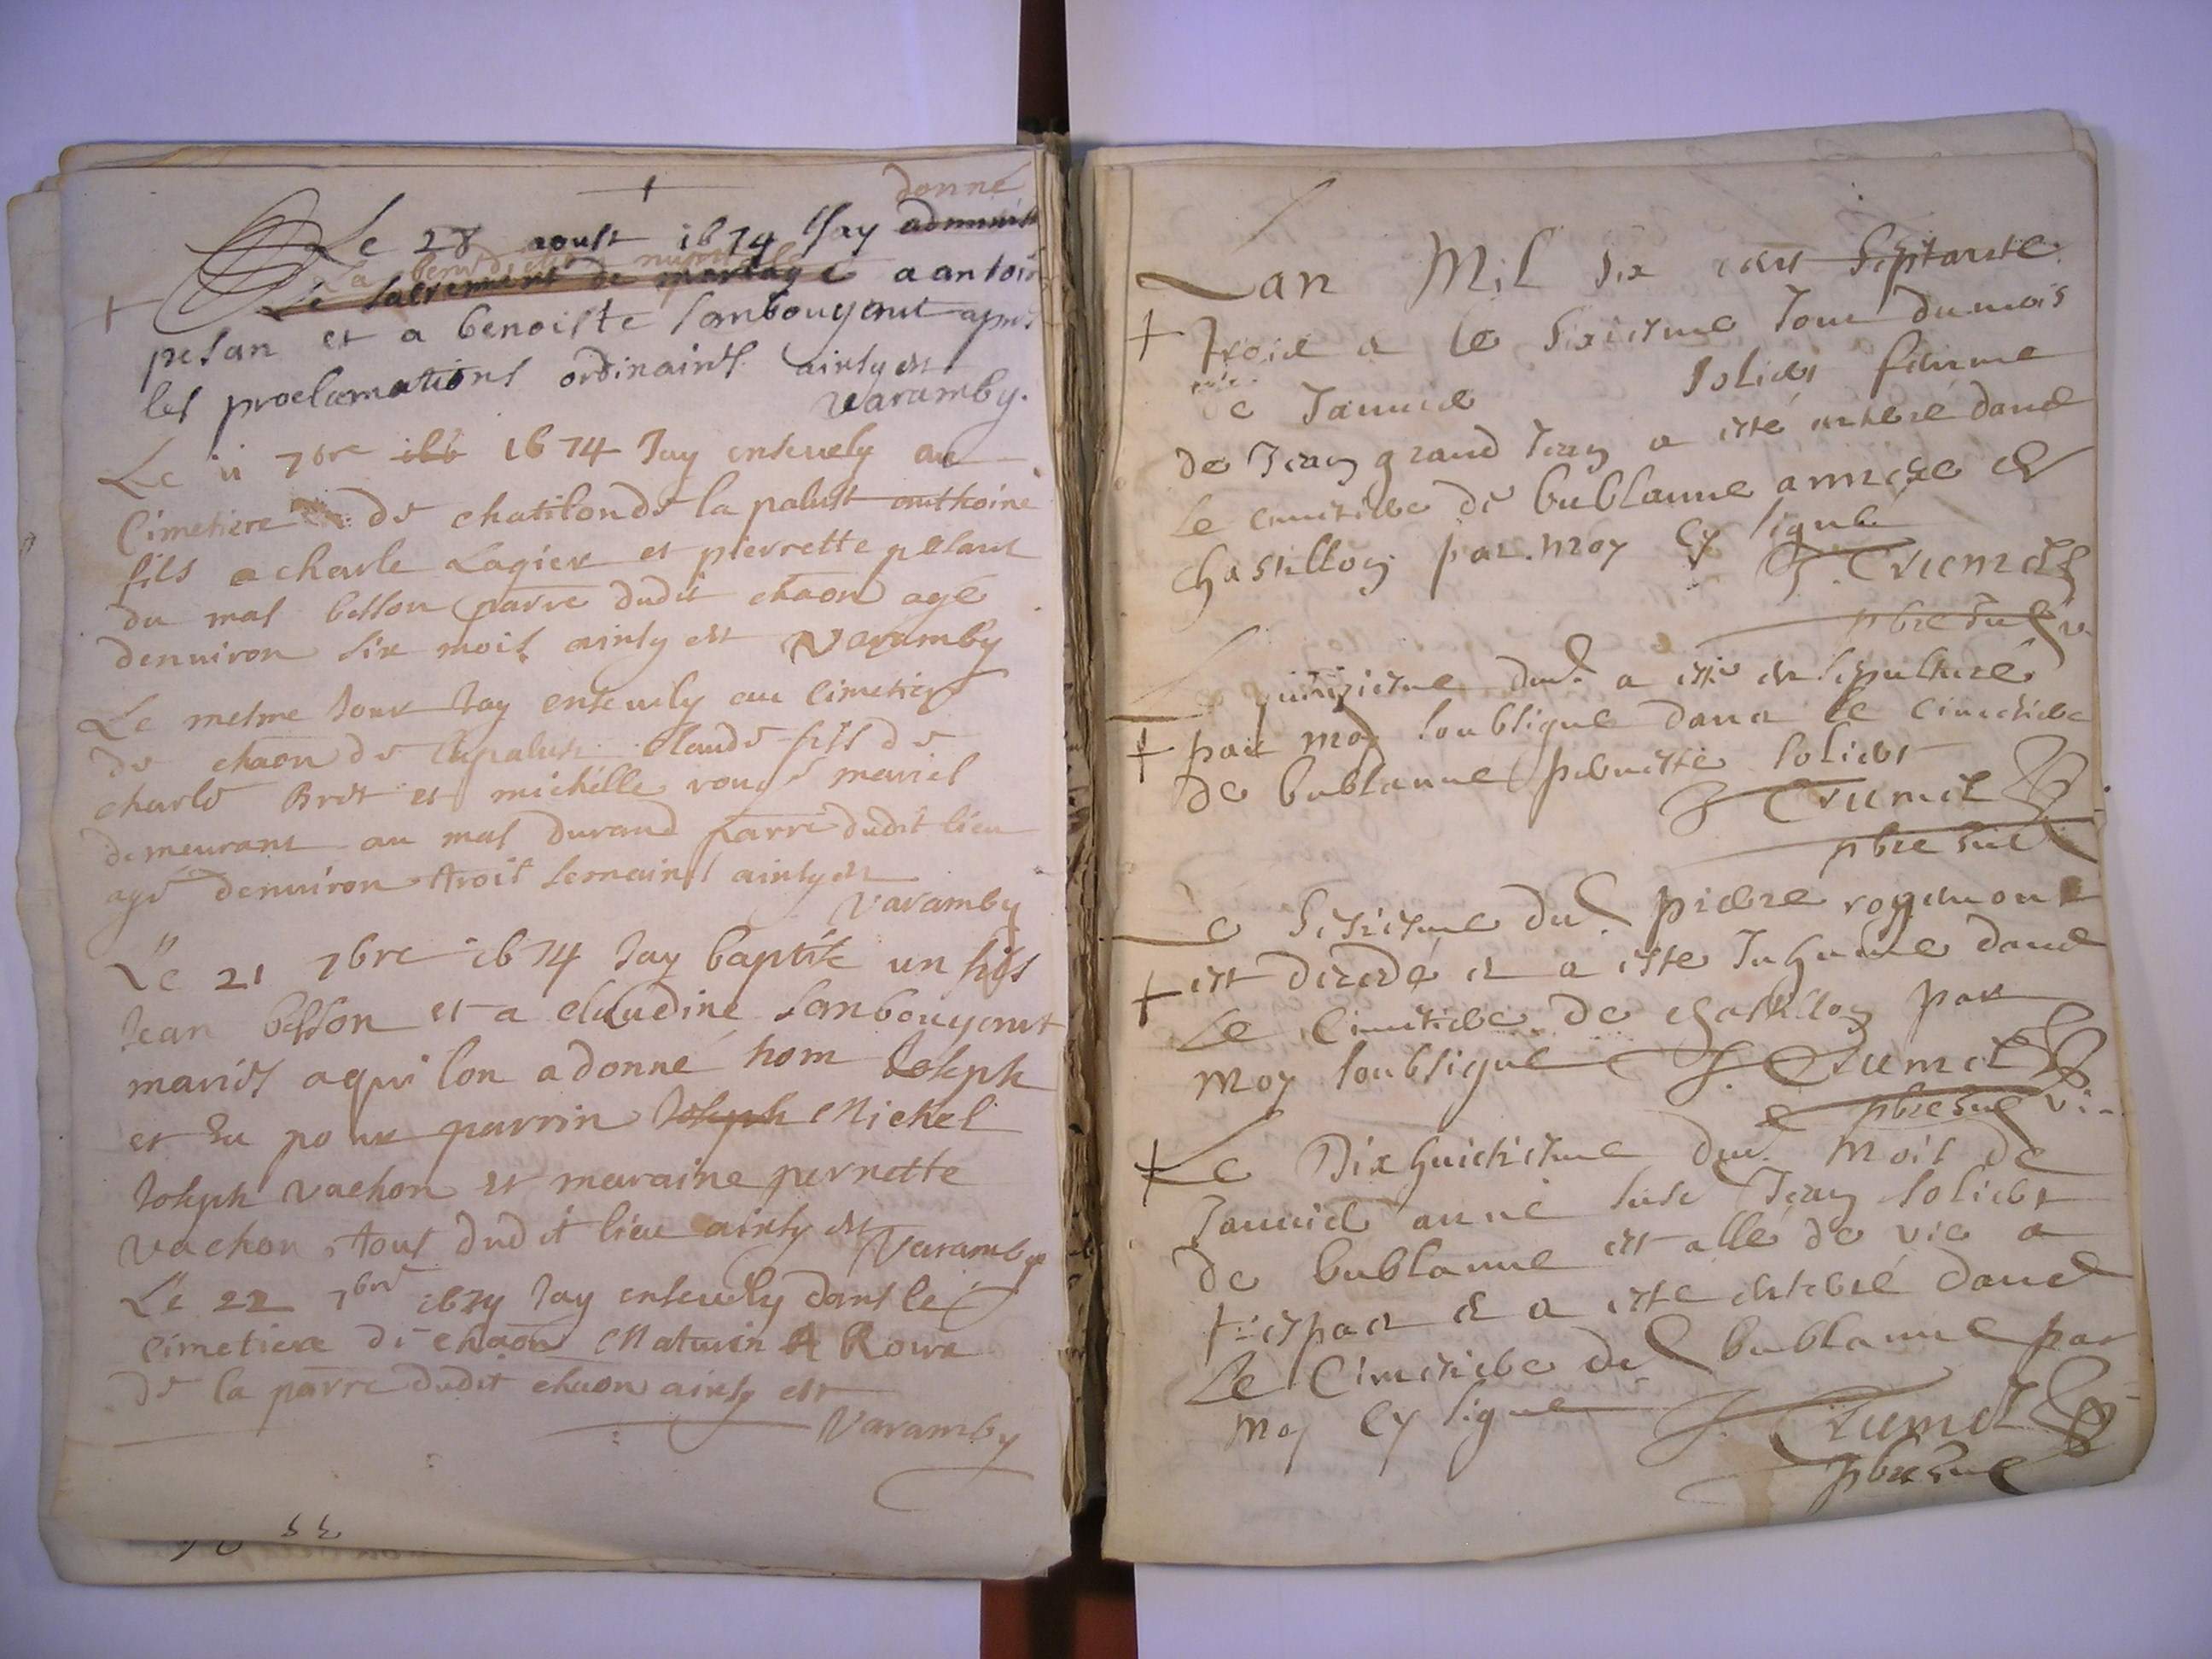 donné
Le 28 aoust 1674 Jay administ
La benediction nuptiale
Le sacrement de mariage a antoin
pesan et a benoiste sambouyant apres
les proclamations ordinaires ainsy est
Varamby.
Le 11 7bre 1674 Jay ensevely au
Cimetiere de chatilonde la palust anthoine
fils a charle Lagier et pierrette pesant
du mas besson parre dudit chaon age
denuiron six mois ainsy est Varamby
Le mesme Jour Jay ensevely au Cimetiere
de chaon de lapalust Claude fils de
charle Brot et michelle rouge mariés
demeurant au mas durand parre dudit lieu
agé denuiron troit semaines ainsy est
Varamby
Le 21 7bre 1674 Jay baptise un fils
Jean besson et a claudine sambouyant
mariés aqui lon a donné nom Joseph
et Eu pour parrin Joseph Michel
Joseph vachon et maraine pernette
vachon tous dudit lieu ainsy est Varamby
Le 22 7bre 1674 Jay ensevely dans le
Cimetiere de chaon Maturin A Roux
de la parre dudit chaon ainsy est
Varamby
Lan Mil six cent septante
troix a le sixiesme Jour du mois
de Januier Soliet femme
de Jean grand Jean a esté enterré dans
le cimitiere de bublanne annexe de
Chastillon par moy Cy signé
J. Crumet
pbre vic
Le quinziesme dud. a esté en sepulturé
par moy soubsigné dans le cimitiere
de bublanne pernette Soliet
J Crumet
pbre vic
Le sesziesme dud. pierre rogemont
est decedé et a esté Inhumé dans
Le Cimitiere de chastillon par
moy soubsigné J. Crumet
pbre vic
Le Dixhuictiesme dud. mois de
Januier anne susd Jean Soliet
de bublanne est allé de vie a
trespas et a esté enterré dans
Le Cimitiere de bublanne par
moy Cy signe J. Crumet
pbre vic